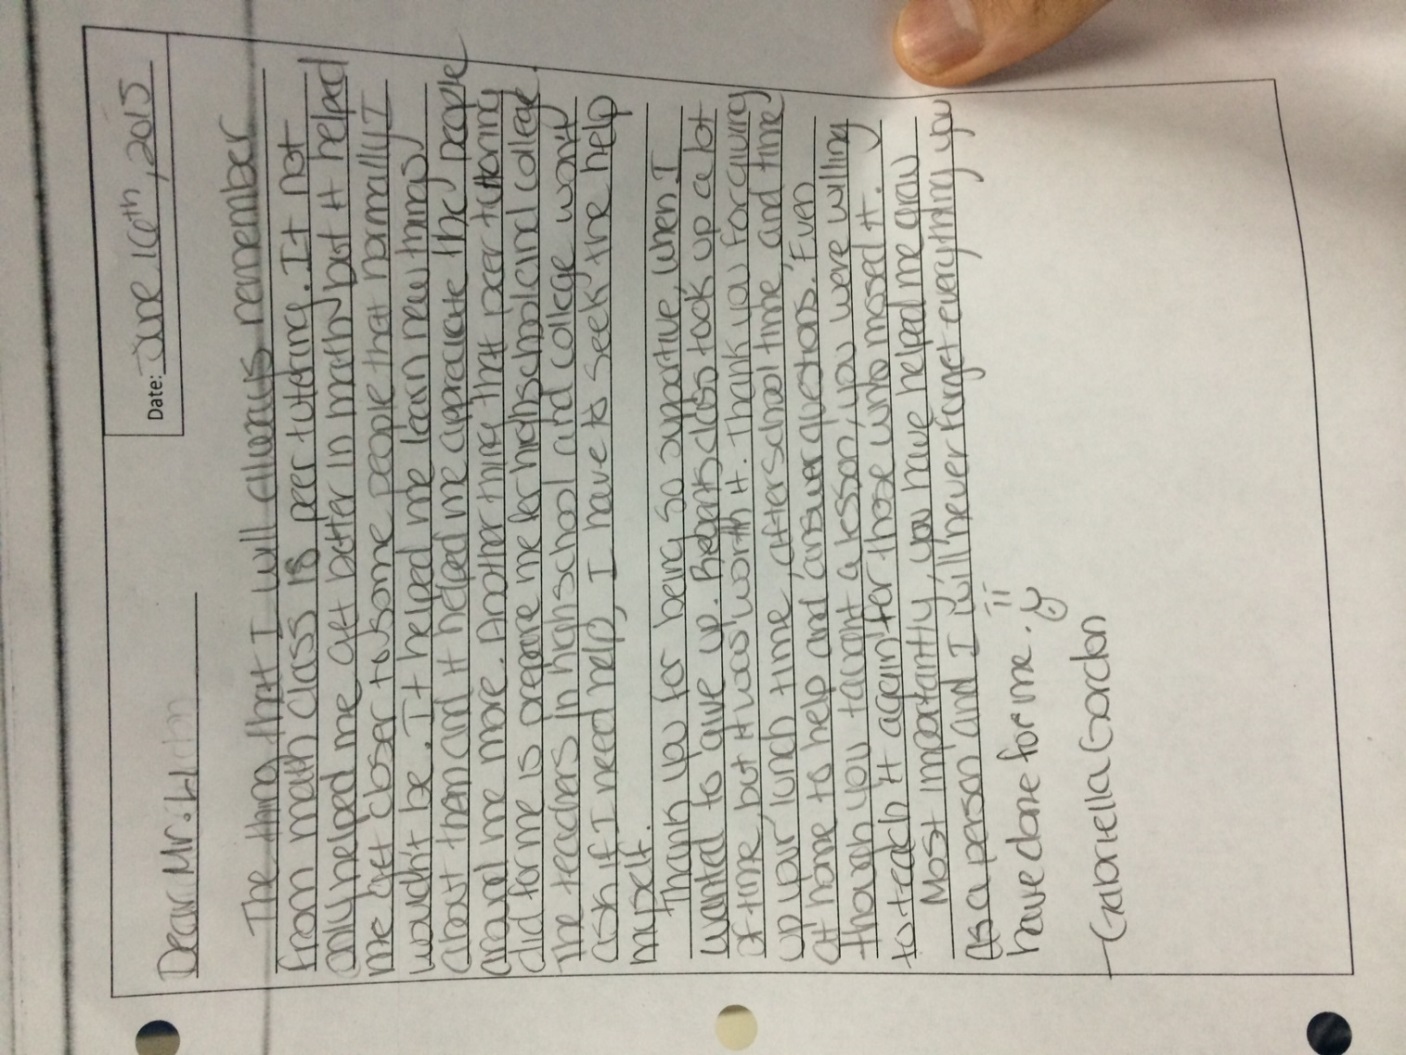 Date: June 16th, 2015
Dear Mr.
The thing that I will always remember
from math class is peer tutering. It not
only helped me get better in math, but it helped
me get closer to some people that normally I
wouldn't be. It helped me learn new things
about them and it helped me appreciate the people
around me more. Another thing that peer tutoring
did for me is prepare me for highschool and college.
The teachers in high school and college won't
ask if I need help, I have to seek the help
myself.
Thank you for being so supportive, when I
wanted to give up. Regents class took up a lot
of time, but it was worth it. Thank you for giving
up your lunch time, after school time, and time
at home to help and answer questions. Even
though you taught a lesson, you were willing
to teach it again for those who missed it.
Most importantly, you have helped me grow
as a person and I will never forget everything you
have done for me.
-Gabriella Gordon